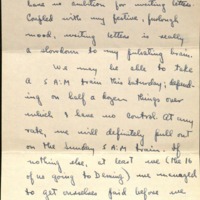 have no ambition for writing letters.
Coupled with my festive, furlough
mood, writing letters is really
a slowdown to my pulsating brain.
We may be able to take
a 5 A.M train this Saturday; depend-
ing on half a dozen things over
which I have no control. At any
rate, we will definitely pull out
on the Sunday 5 A.M train. If
nothing else, at least we (the 16
of us going to Deming) we managed
to get ourselves paid before we